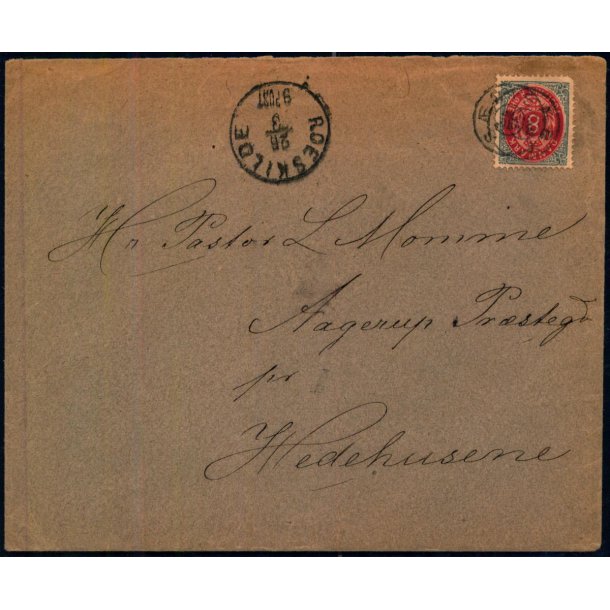 ROESKILDE
28
3
9 POST
8
Hr Pastor L Momme
Aagerup Præstegd
pr
Hedehusene